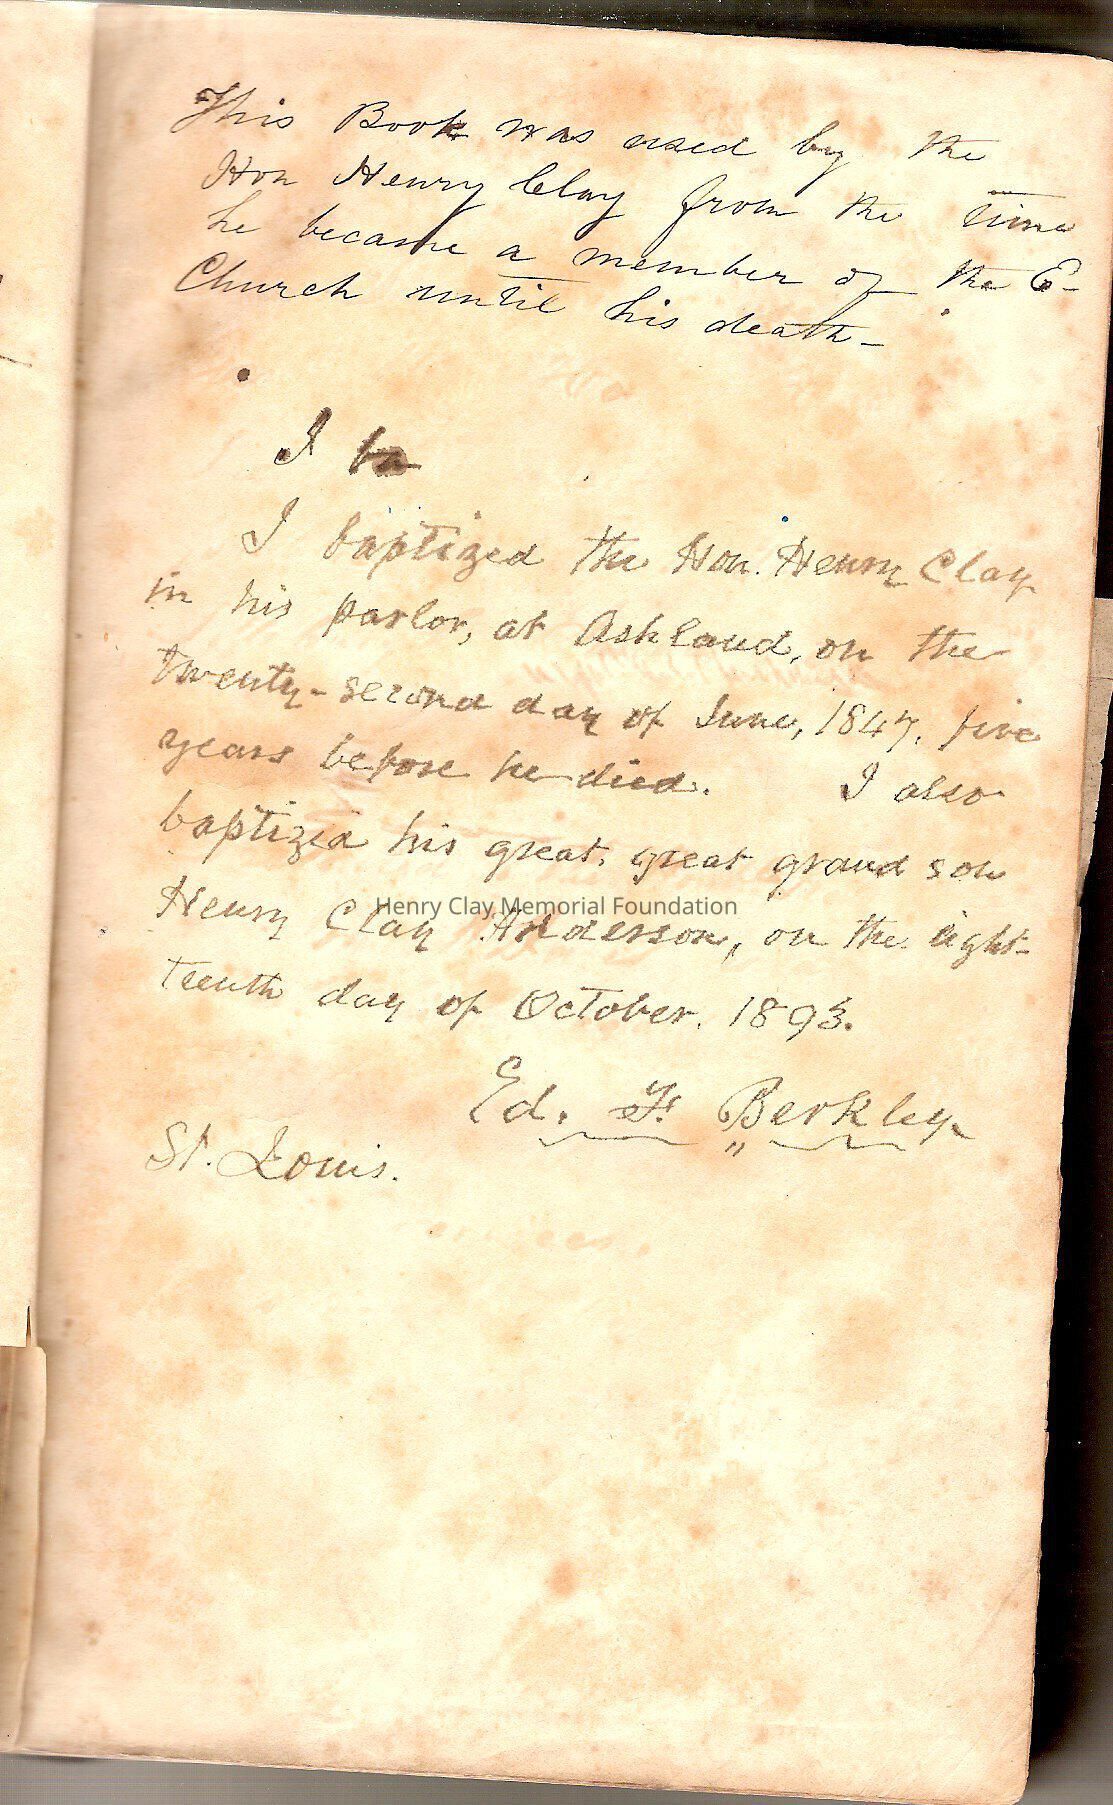 This Book was used by the
Hon Henry Clay from the time
he became a member of the E-
Church until his death-
I ba
I baptized the Hon. Henry Clay
in his parlor, at Ashland, on the
twenty-second day of June, 1847, five
years before he died. I also
baptized his great, great grand son
Henry Clay Anderson, on the eight-
teenth day of October, 1893.
Henry Clay Memorial Foundation
Ed. F. Berkley
St. Louis.